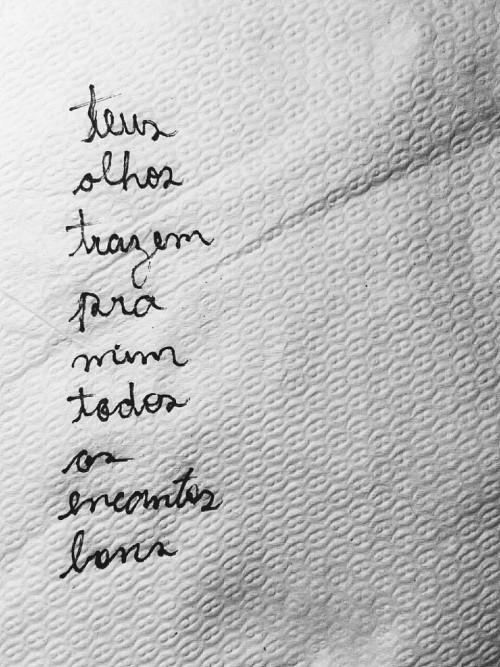 teus
olhos
trazem
pra
mim
todos
os
encantos
bons